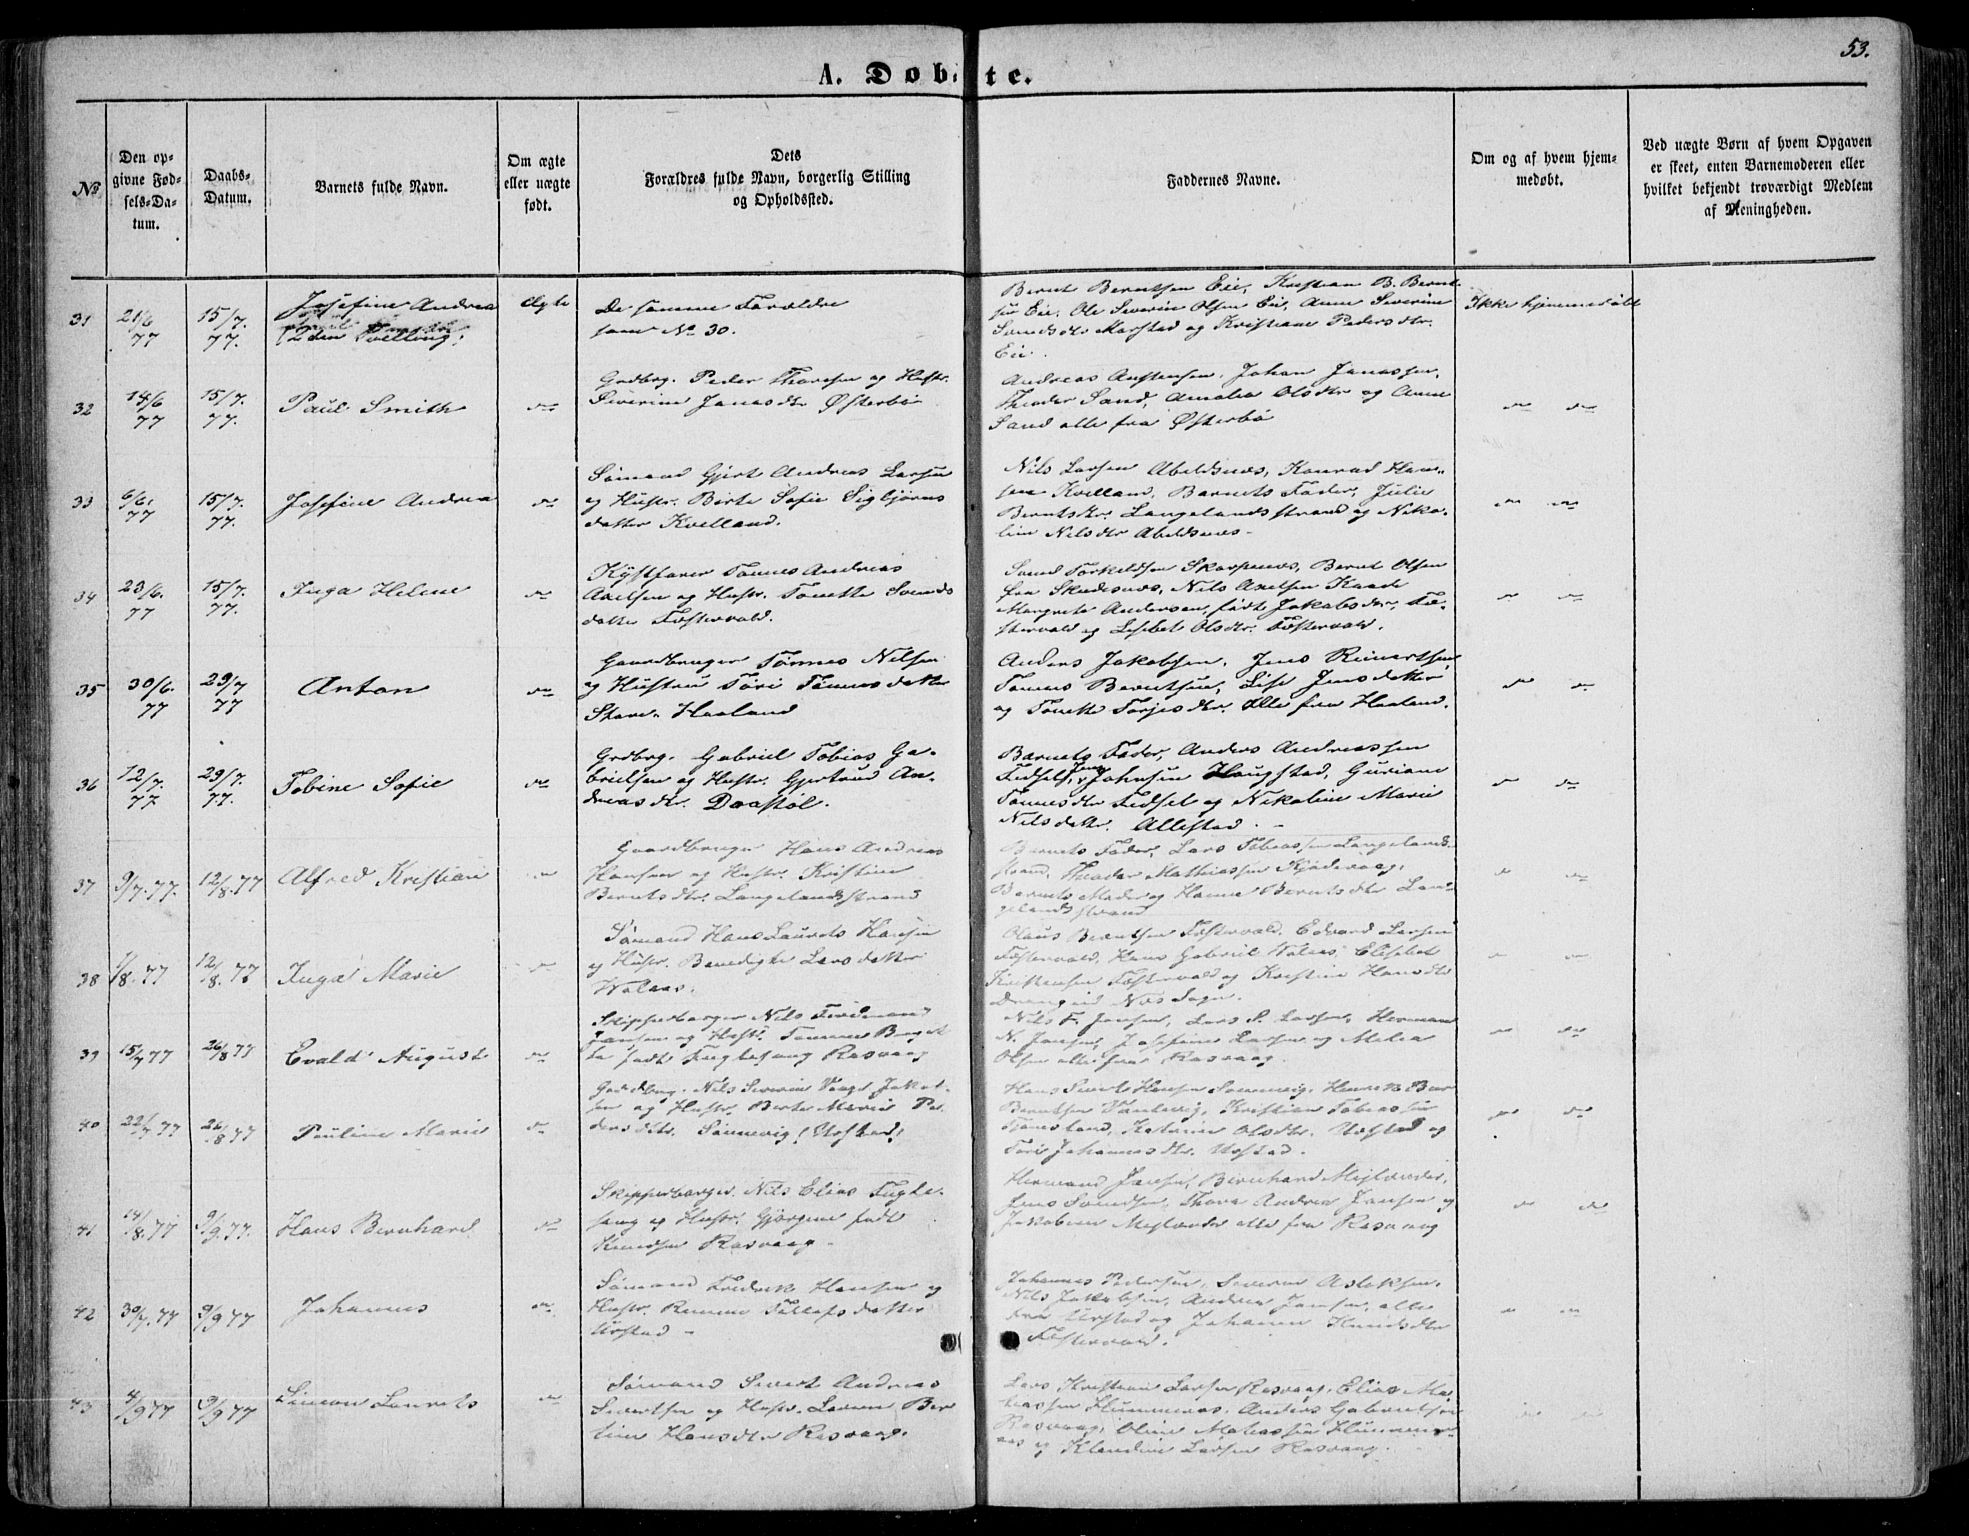 53.
A. Døbte.
No
Den op-
givne Fød-
sels-Da-
tum.
Daabs-
Datum.
Barnets fulde Navn.
Om ægte
eller uægte
født.
Dets
Forældres fulde Navn, borgerlig Stilling
og Opholdssted.
Faddernes Navne.
Om og af hvem hjem-
medøbt.
Ved uægte Børn af hvem Opgaven
er skeet, enten Barnemoderen eller
hvilket bekjendt troværdigt Medlem
af Meningheden.
31
21/6
77
15/7.
77.
Josefine Andrea
(2den Tvelling)
Ægte
De samme Forældre
som No 30.
Bernt Berntsen Eie, Kristian B. Bernt
sen Eie, Ole Severin Olsen Eie, Anne Severine
Svendsdtr Marstad og Kristiane Pedersdtr.
Eie.
Ikke hjemmedøbt
32
14/6
77
15/7.
77.
Paul Smith
do
Grdbrg. Peder Thorsen og Hustr.
Severine Jonasdtr Østerbø
Andreas Austensen, Johan Janassen,
Theodor Sand, Amalia Olsdtr og Anne
Sand alle fra Østerbø
do do
33
6/6.
77
15/7.
77.
Josefine Andrea
do
Sømand Gjert Andreas Larsen
og Hustr. Birte Sofie Sigbjørns
datter Kvelland.
Nils Larsen Abelsnes, Konrad Han-
sen Kvelland, Barnets Fader, Julie
Berntsdtr. Langelandsstrand og Niko-
line Nilsdtr Abelsnes
do do
34
23/6.
77
15/7.
77.
Inga Helene
do
Kystfarer Tønnes Andreas
Axelsen og Hustr. Tonette Svends
datter Fæstervold.
Svend Torkeldsen Skarpenes, Bernt Olsen
fra Skudesnes, Nils Axelsen Kaade
Margrete Andersen, født Jakobsdtr. Fæ-
stervold og Lisebet Olsdtr. Fæstervold.
do do
35
30/6.
77
29/7
77
Anton
do
Gaardbruger Tønnes Nilsen
og Hustru Tori Tønnesdatter
Store-Haaland
Anders Jakobsen, Jens Reinertsen,
Tønnes Berntsen, Lise Jensdatter
og Tonette Torjesdtr. Alle fra Haaland.
do do
36
12/7.
77
29/7.
77.
Tobine Sofie
do
Grdbrg. Gabriel Tobias Ga-
brielsen og Hustr. Gjertrud An-
dreasdtr. Daastøl.
Barnets Fader, Anders Andreassen
Fedsel, Jens Johnsen Haugstad, Guriane
Tønnesdtr Fedsel og Nikoline Marie
Nilsdatter. Allestad.
do do
37
9/7.77.
12/8.77
Alfred Kristian
do
Gaardbruger Hans Andreas
Hansen og Hustr. Kristine
Berntsdtr. Langelandsstrand
Barnets Fader, Lars Tobiassen Langelands-
strand, Theodor Mathiassen
Barnets Moder og Hanne Berntsdtr Lan-
gelandsstrand
do do
38
1/8.77
12/8.77
Inga Marie
do
Sømand Hans Laurets Hansen
og Hustr. Benedigte Larsdatter
Olaus Berntsen Fæstervold, Edvard Larsen
Fæstervold, Hans Gabriel Elisebet
Kristensen Fæstervold og Kristine Hansdtr
Sogn.
do do
39
15/7 77
26/8 77
Evald August
do
Skipperborger Nils Ferdinand
Jansen og Hustr. Tomine Berget
te født Fuglesang Rasvaag
Nils F. Jansen, Lars P. Larsen, Herman
N. Jansen, Josefine Larsen og Malia
Olsen alle fra Rasvaag.
do do
40
22/7 77
26/8 77
Pauline Marie
do
Gaardbrug. Nils Severin Jakob-
sen og Hustr. Berte Marie Pe-
dersdtr. Sønnevig (Urstad)
Hans Hansen Sønnevig, Henrik
Berntsen Kristian Tobiassen
Tjørnsland, Katarine Olsdtr. Urstad og
Tori Johannesdtr. Urstad.
do do
41
14/8.77
9/9.77.
Hans Bernhard
do
Skipperborger Nils Elias Fugle-
sang og Hustr. Gjørgine født
Knudsen Rasvaag
Hermand Jansen, Bernhard Mejlænder,
Jens Svendsen, Thora Andrea Jansen og
Jakobine Mejlænder alle fra Rasvaag
do do
42
30/7.77
9/9 77
Johannes
do
Sømand Fredrik Hansen og
Hustr. Tallefsdatter
Urstad
Johannes Pedersen, Severin Aslaksen,
Nils Jakobsen, Andrea Jansen, alle
fra Urstad og Johanne Knudsdtr
Fæstervold.
do do
43
4/9 77
9/9 77
Simon Laurets
do
Sømand Sivert Andreas
Sivertsen og Hustr. Ber
tine Hansdtr Rasvaag.
Lars Kristian Larsen Rasvaag, Elias Ma-
tiassen Hummeraas, Anders Gabrielsen
Rasvaag, Oline Matiassen Hummer-
aas og Klandine Larsen Rasvaag.
do do